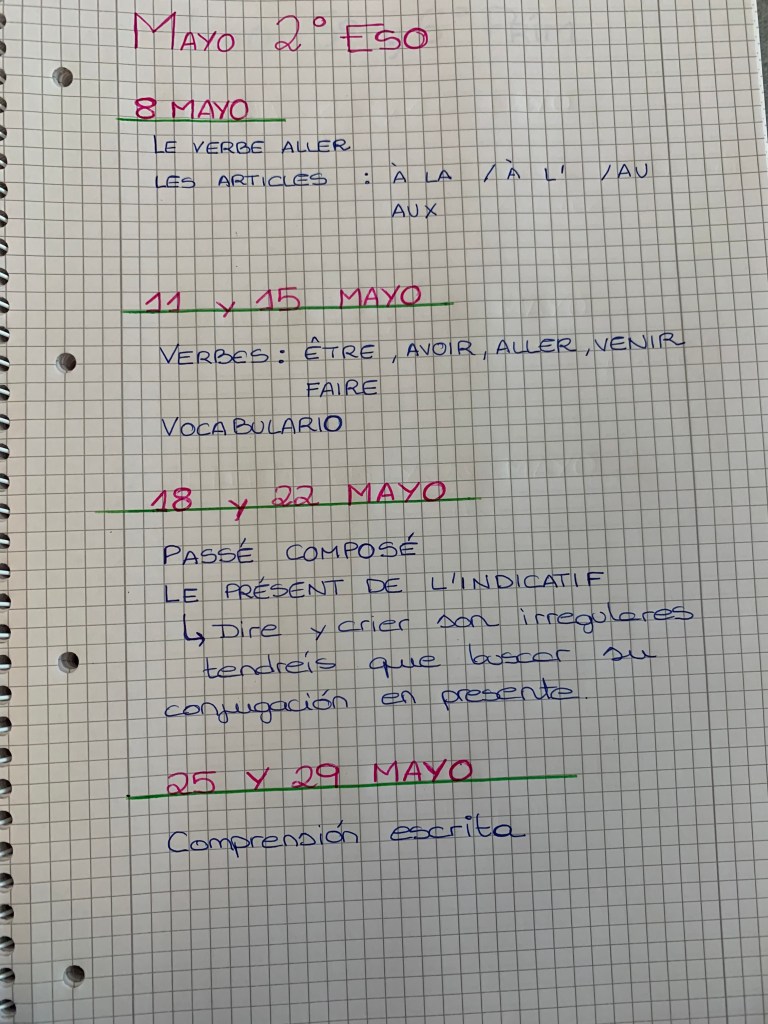 MAYO 2º ESO
8 MAYO
LE VERBE ALLER
LES ARTICLES : À LA / À L' / AU
AUX
11 y 15 MAYO
VERBES : ÊTRE , AVOIR , ALLER , VENIR
FAIRE
VOCABULARIO
18 y 22 MAYO
PASSÉ COMPOSÉ
LE PRÉSENT DE L'INDICATIF
↳ Dire y crier son irregulares
tendreis que buscar su
conjugación en presente.
25 Y 29 MAYO
Comprensión escrita